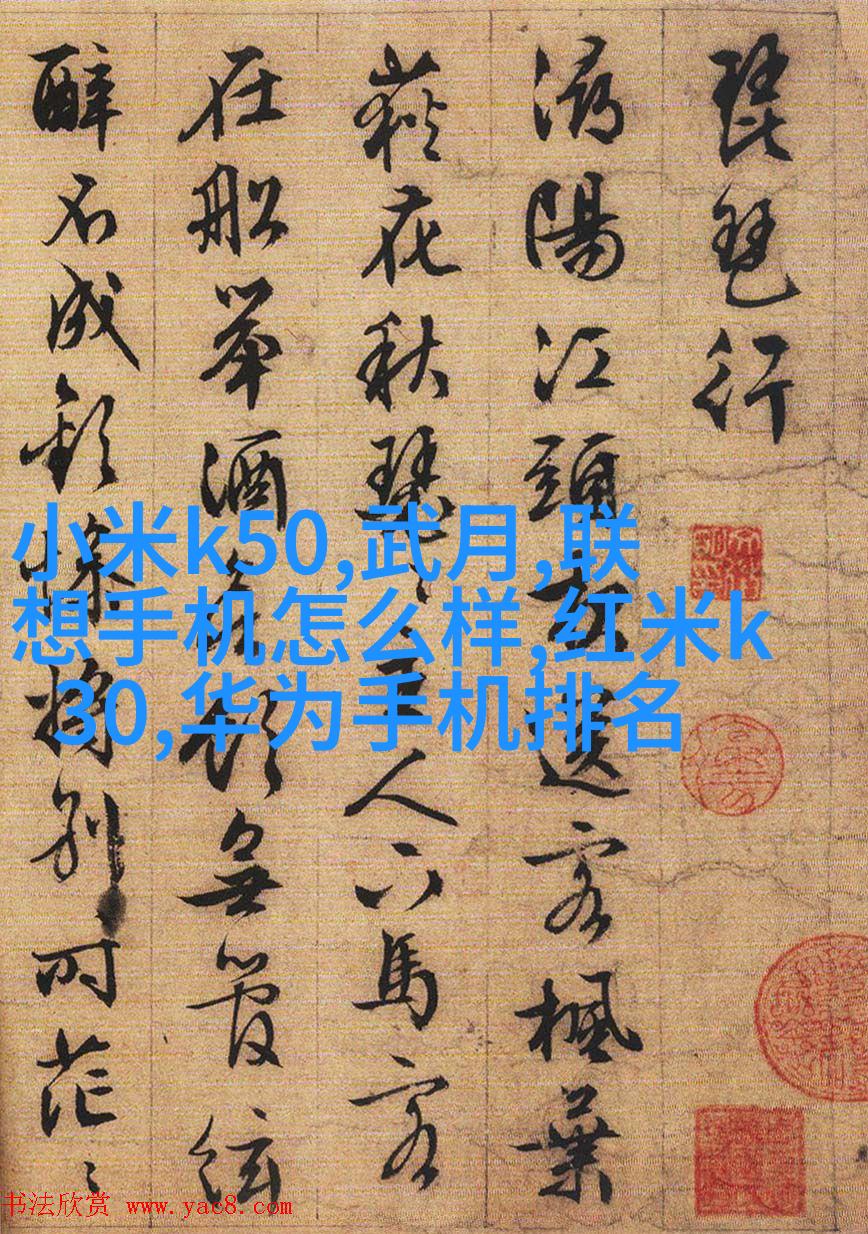 琵琶行
潯陽江頭夜送客楓葉
荻花秋瑟〻主人下馬客
在船舉酒欲飲無管絃
醉不成歡慘將別〻时茫〻
小米k50,武月,联
想手机怎么样,红米k
30,华为手机排名
书法欣赏 www.yac8.com